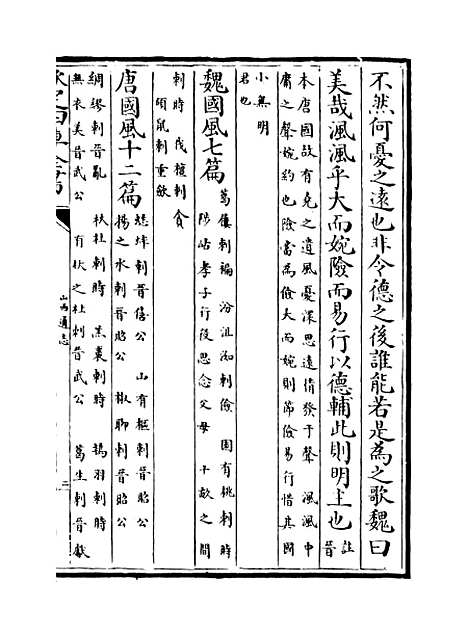 不然何憂之遠也非令德之後誰能若是為之歌魏曰
美哉渢渢乎大而婉險而易行以德輔此則明主也 註
晉
本唐國故有堯之遺風憂深思遠情發于聲 渢渢中
庸之聲婉約也險當為儉大而婉則節儉易行惜其國
小無明
君也
魏國風七篇 葛屨刺褊 汾沮洳刺儉 園有桃刺時
陟岵孝子行役思念父母 十畝之間
刺時 伐檀刺貪
碩鼠刺重斂
唐國風十二篇 蟋蟀刺晉僖公 山有樞刺晉昭公
揚之水刺晉昭公 椒聊刺晉昭公
綢繆刺晉亂 杕杜刺時 羔裘刺時 鴇羽刺時
無衣美晉武公 有杕之杜刺晉武公 葛生刺晉獻
欽定四庫全書
山西通志
二